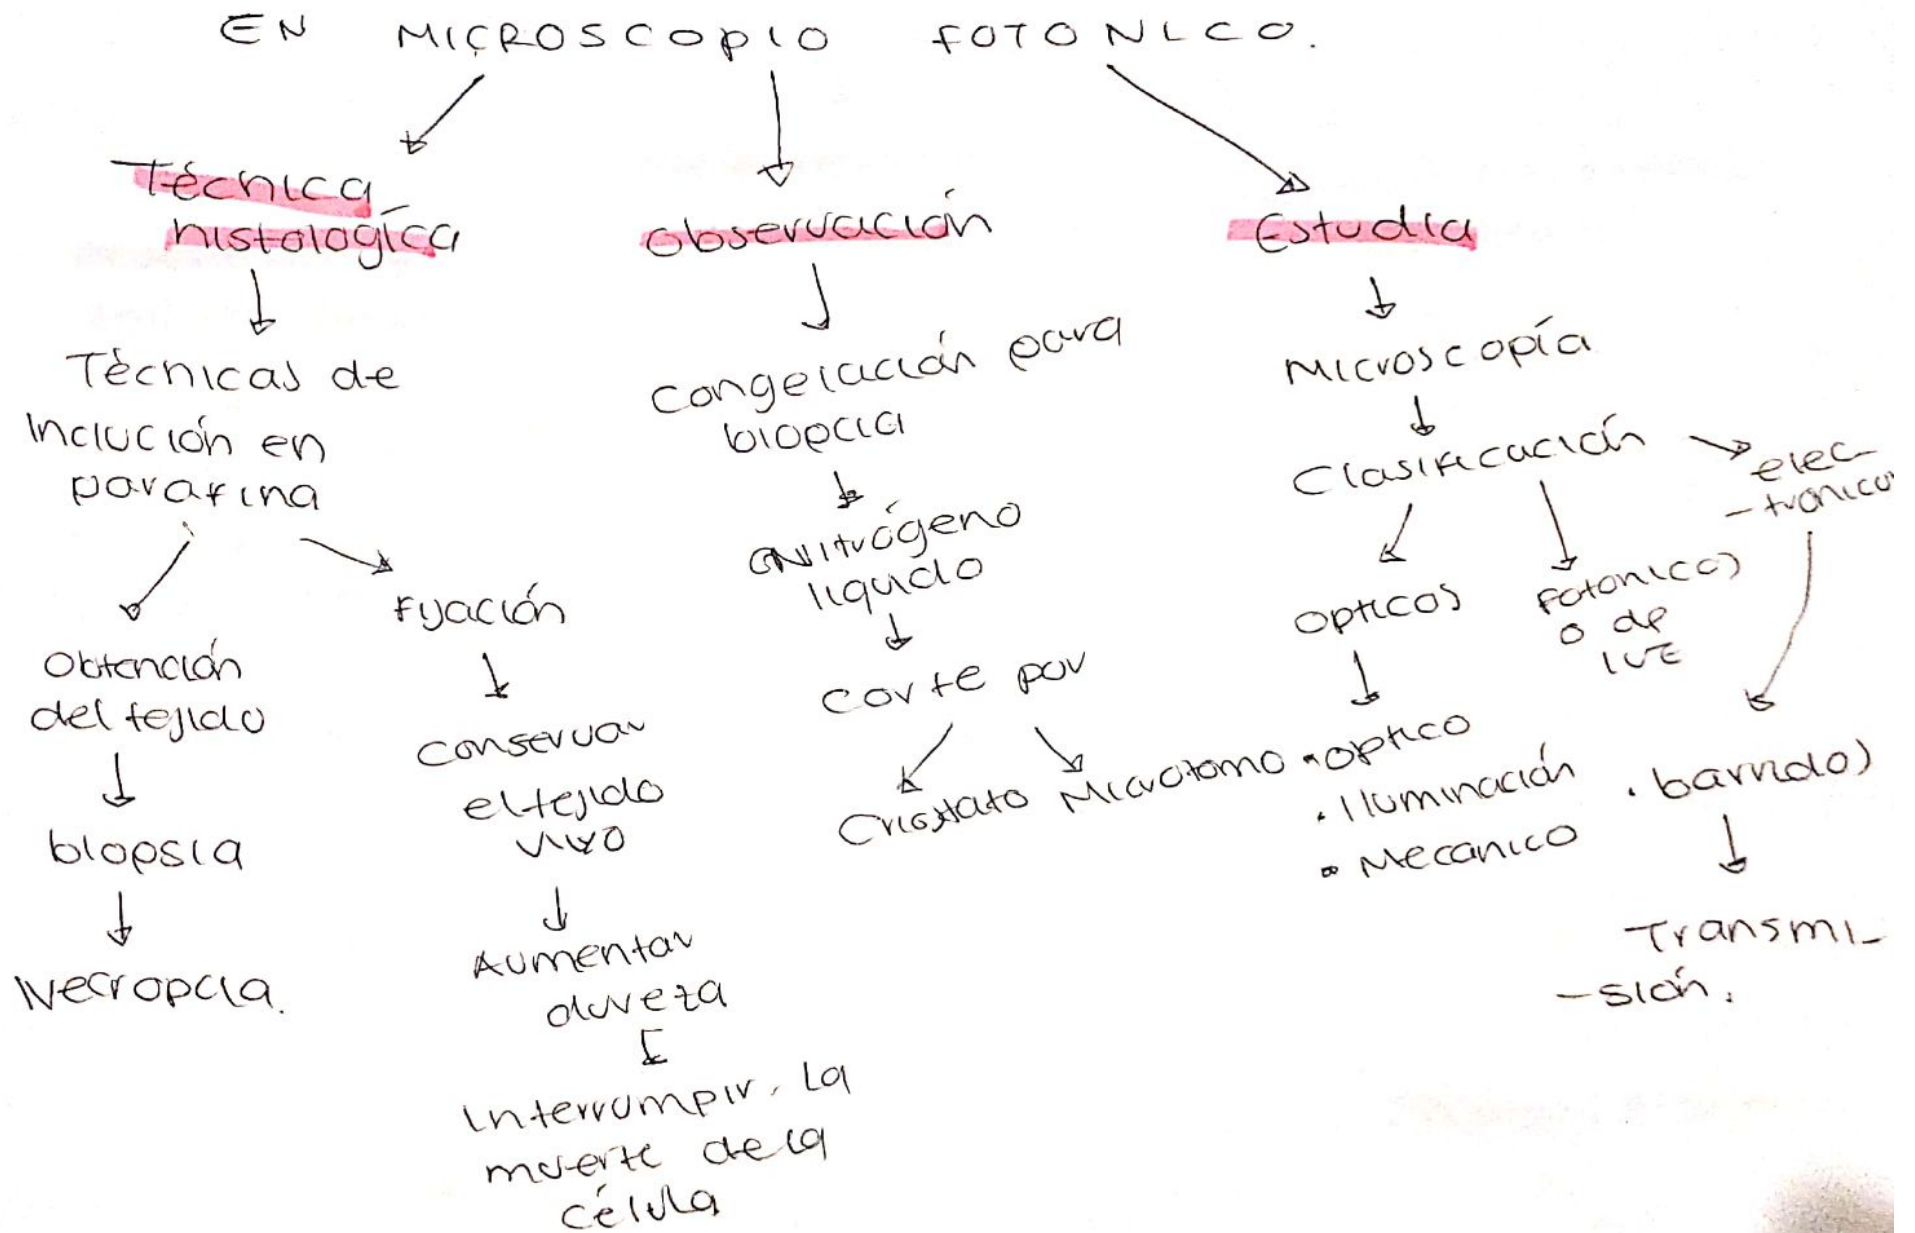 EN MICROSCOPIO FOTONICO.
Técnica
histologíca
Técnicas de
Inclución en
parafina
Obtención
del tejido
biopsia
Necropcia.
Fijación
Conservar
el tejido
vivo
Aumentar
dureza
Interrumpir. La
muerte de la
célula
Observación
Congelación para
biopcia
Nitrógeno
liquido
Corte por
Criostato
Microtomo
Estudia
Microscopía
Clasificación
Opticos
• optico
• Iluminación
• Mecanico
Fotonicos
o de
luz
elec-
-tronico
• barridos
Transmi-
-sión.